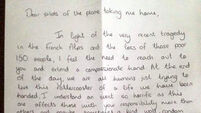 Dear pilots of the plane taking me home,
In light of the very recent tragedy
in the french Alps and the loss of those poor
150 people, I feel the need to reach out to
you and extend a compassionate hand. At the end
of the day, we are all humans just trying to
live this rollercoaster of a life we have been
handed. I understand an event so horrific as this
one affects those with your responsibility more than
others and maybe sometimes a kind word, random